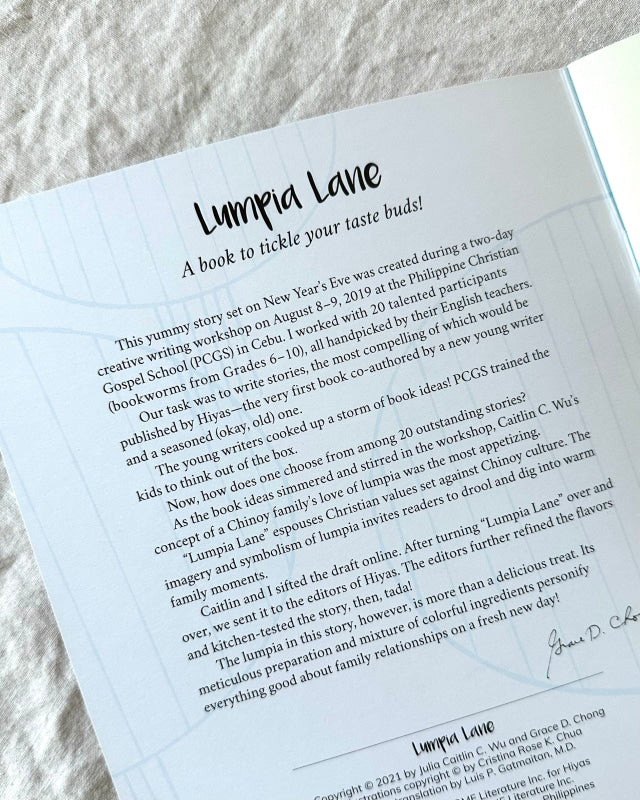 Lumpia Lane
A book to tickle your taste buds!
This yummy story set on New Year's Eve was created during a two-day
creative writing workshop on August 8–9, 2019 at the Philippine Christian
Gospel School (PCGS) in Cebu. I worked with 20 talented participants
(bookworms from Grades 6–10), all handpicked by their English teachers.
Our task was to write stories, the most compelling of which would be
published by Hiyas—the very first book co-authored by a new young writer
and a seasoned (okay, old) one.
The young writers cooked up a storm of book ideas! PCGS trained the
kids to think out of the box.
Now, how does one choose from among 20 outstanding stories?
As the book ideas simmered and stirred in the workshop, Caitlin C. Wu's
concept of a Chinoy family's love of lumpia was the most appetizing.
"Lumpia Lane" espouses Christian values set against Chinoy culture. The
imagery and symbolism of lumpia invites readers to drool and dig into warm
family moments.
Caitlin and I sifted the draft online. After turning "Lumpia Lane" over and
over, we sent it to the editors of Hiyas. The editors further refined the flavors
and kitchen-tested the story, then, tada!
The lumpia in this story, however, is more than a delicious treat. Its
meticulous preparation and mixture of colorful ingredients personify
everything good about family relationships on a fresh new day!
Grace D. Cho
Lumpia Lane
Copyright © 2021 by Julia Caitlin C. Wu and Grace D. Chong
strations copyright © by Cristina Rose K. Chua
translation by Luis P. Gatmaitan, M.D.
MF Literature Inc. for Hiyas
MF Literature Inc.
Philippines